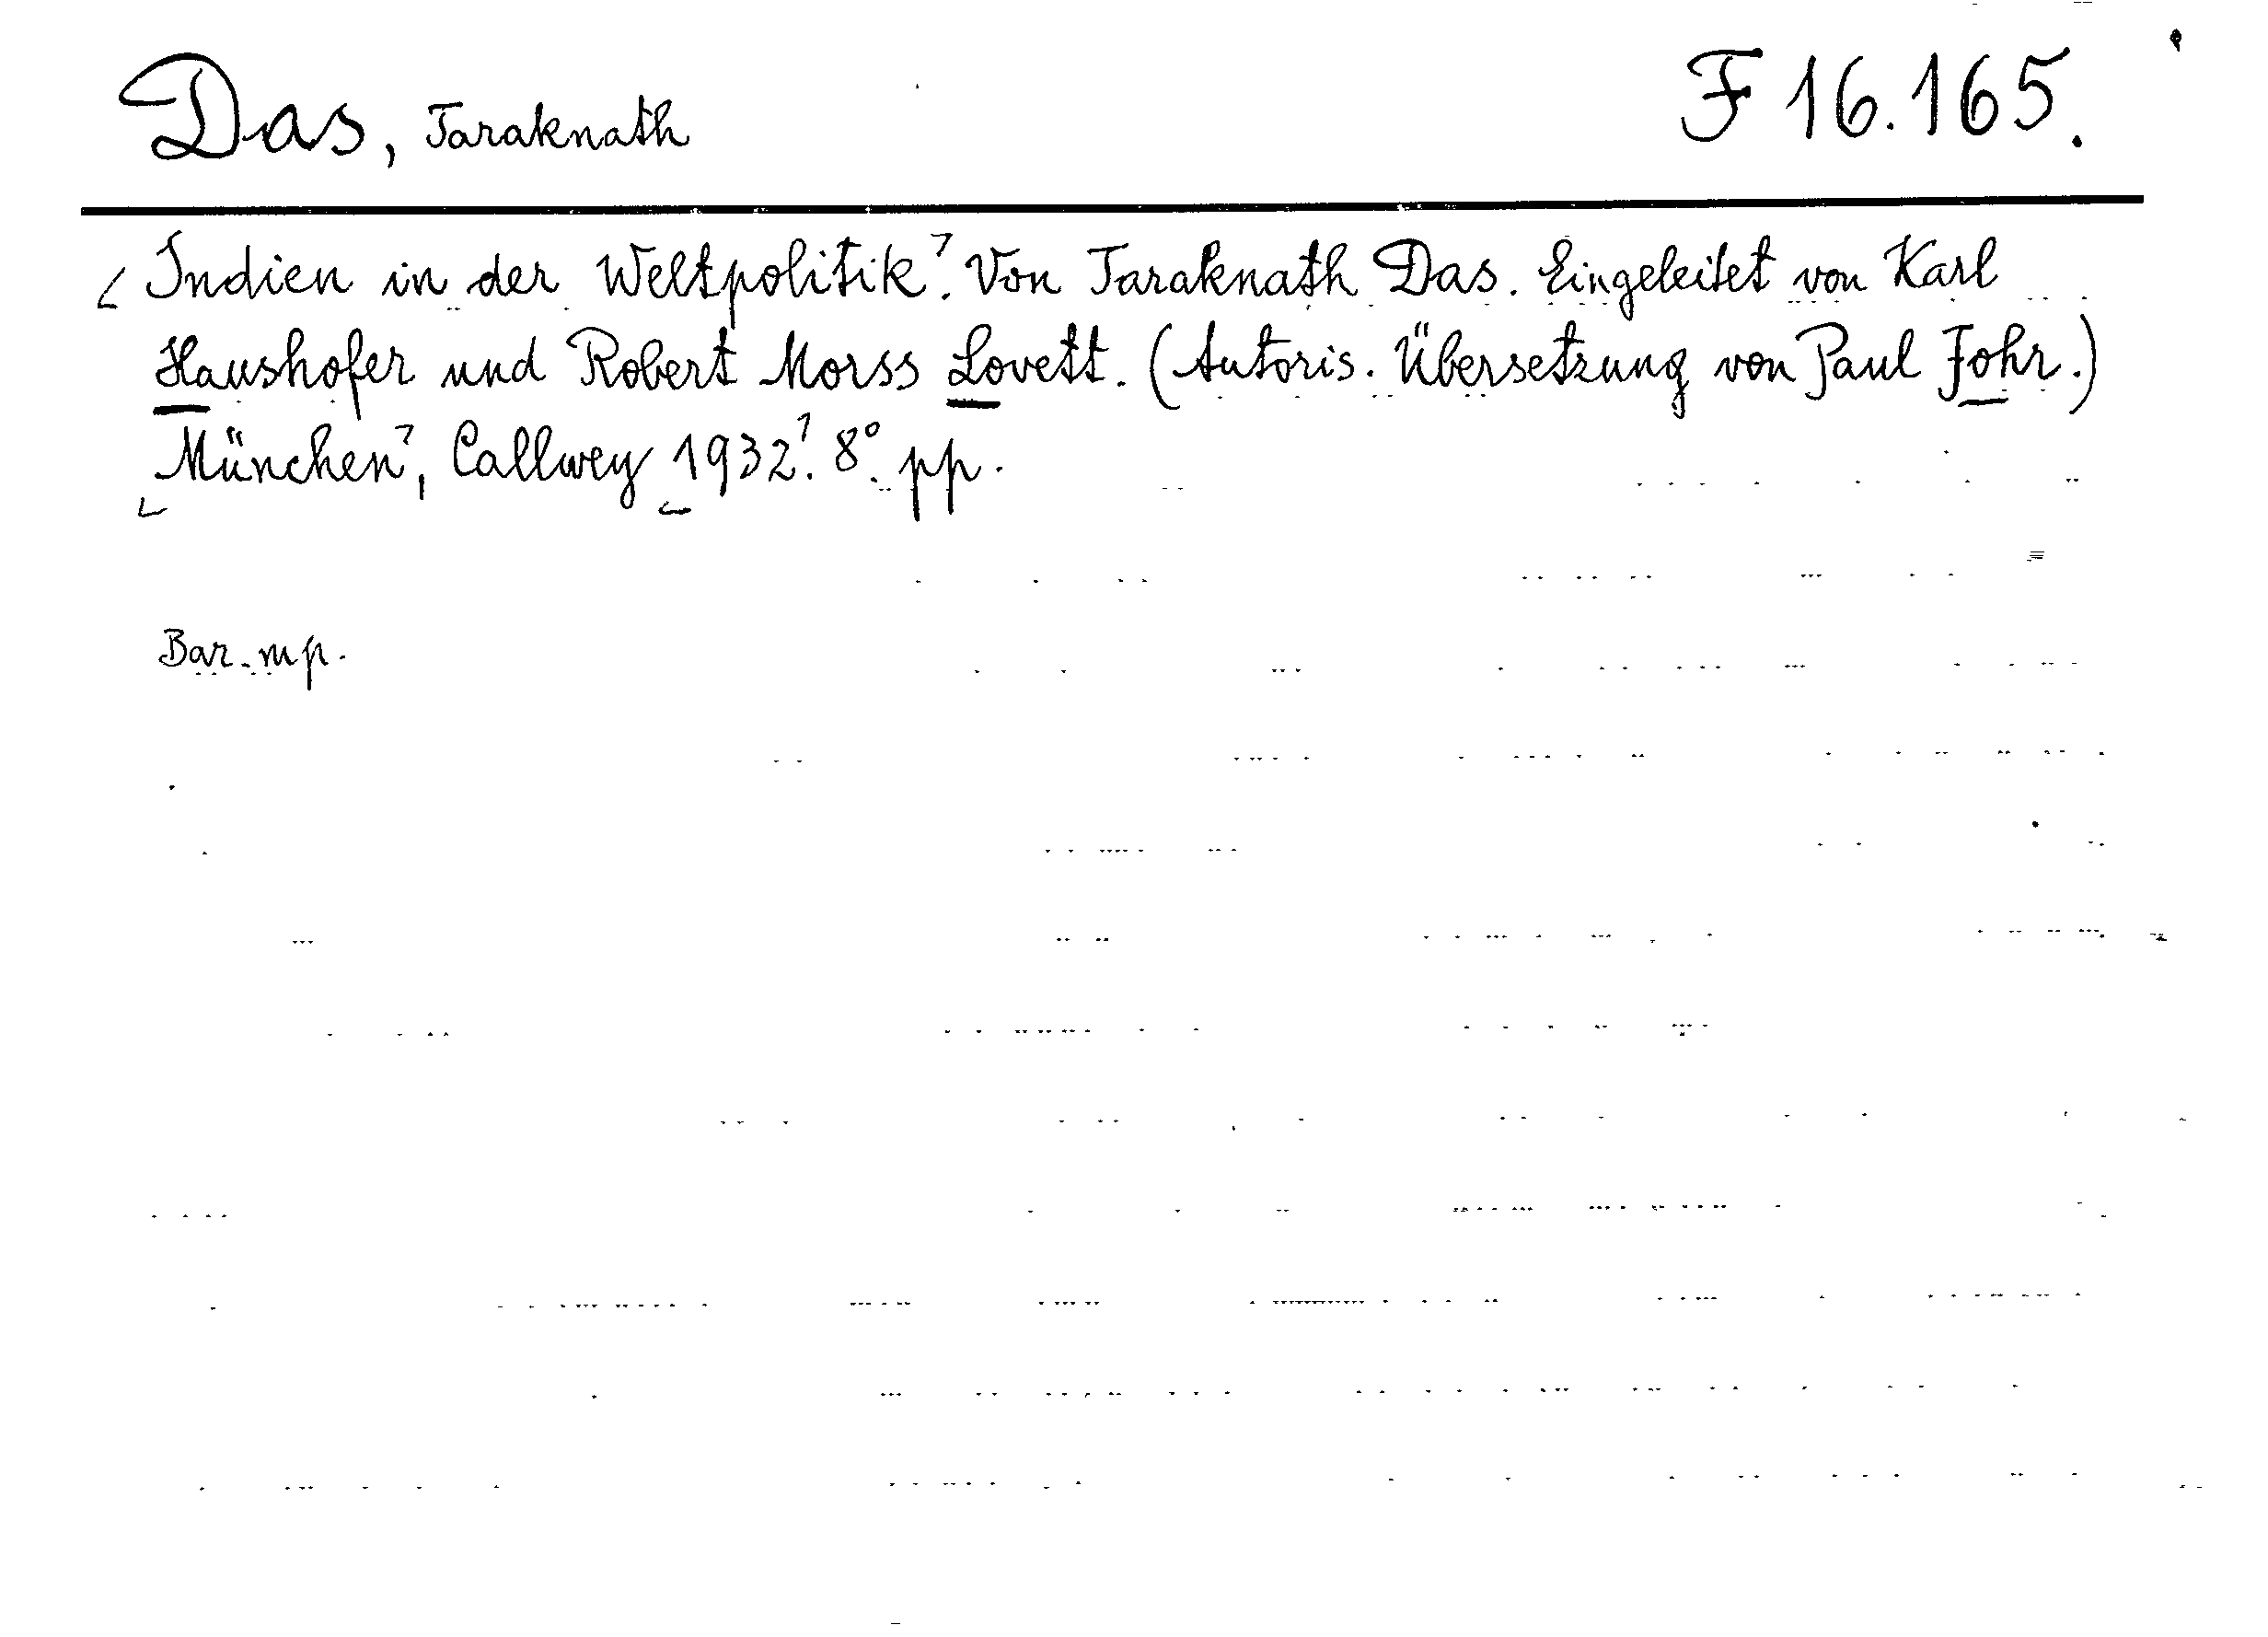 Das, Taraknath F 16.165.
Indien in der Weltpolitik. Von Taraknath Das. Eingeleitet von Karl
Haushofer und Robert Morss Lovett. (Autoris. Übersetzung von Paul Fohr.)
München, Callwey 1932. 8°. pp.
Bar. mp.